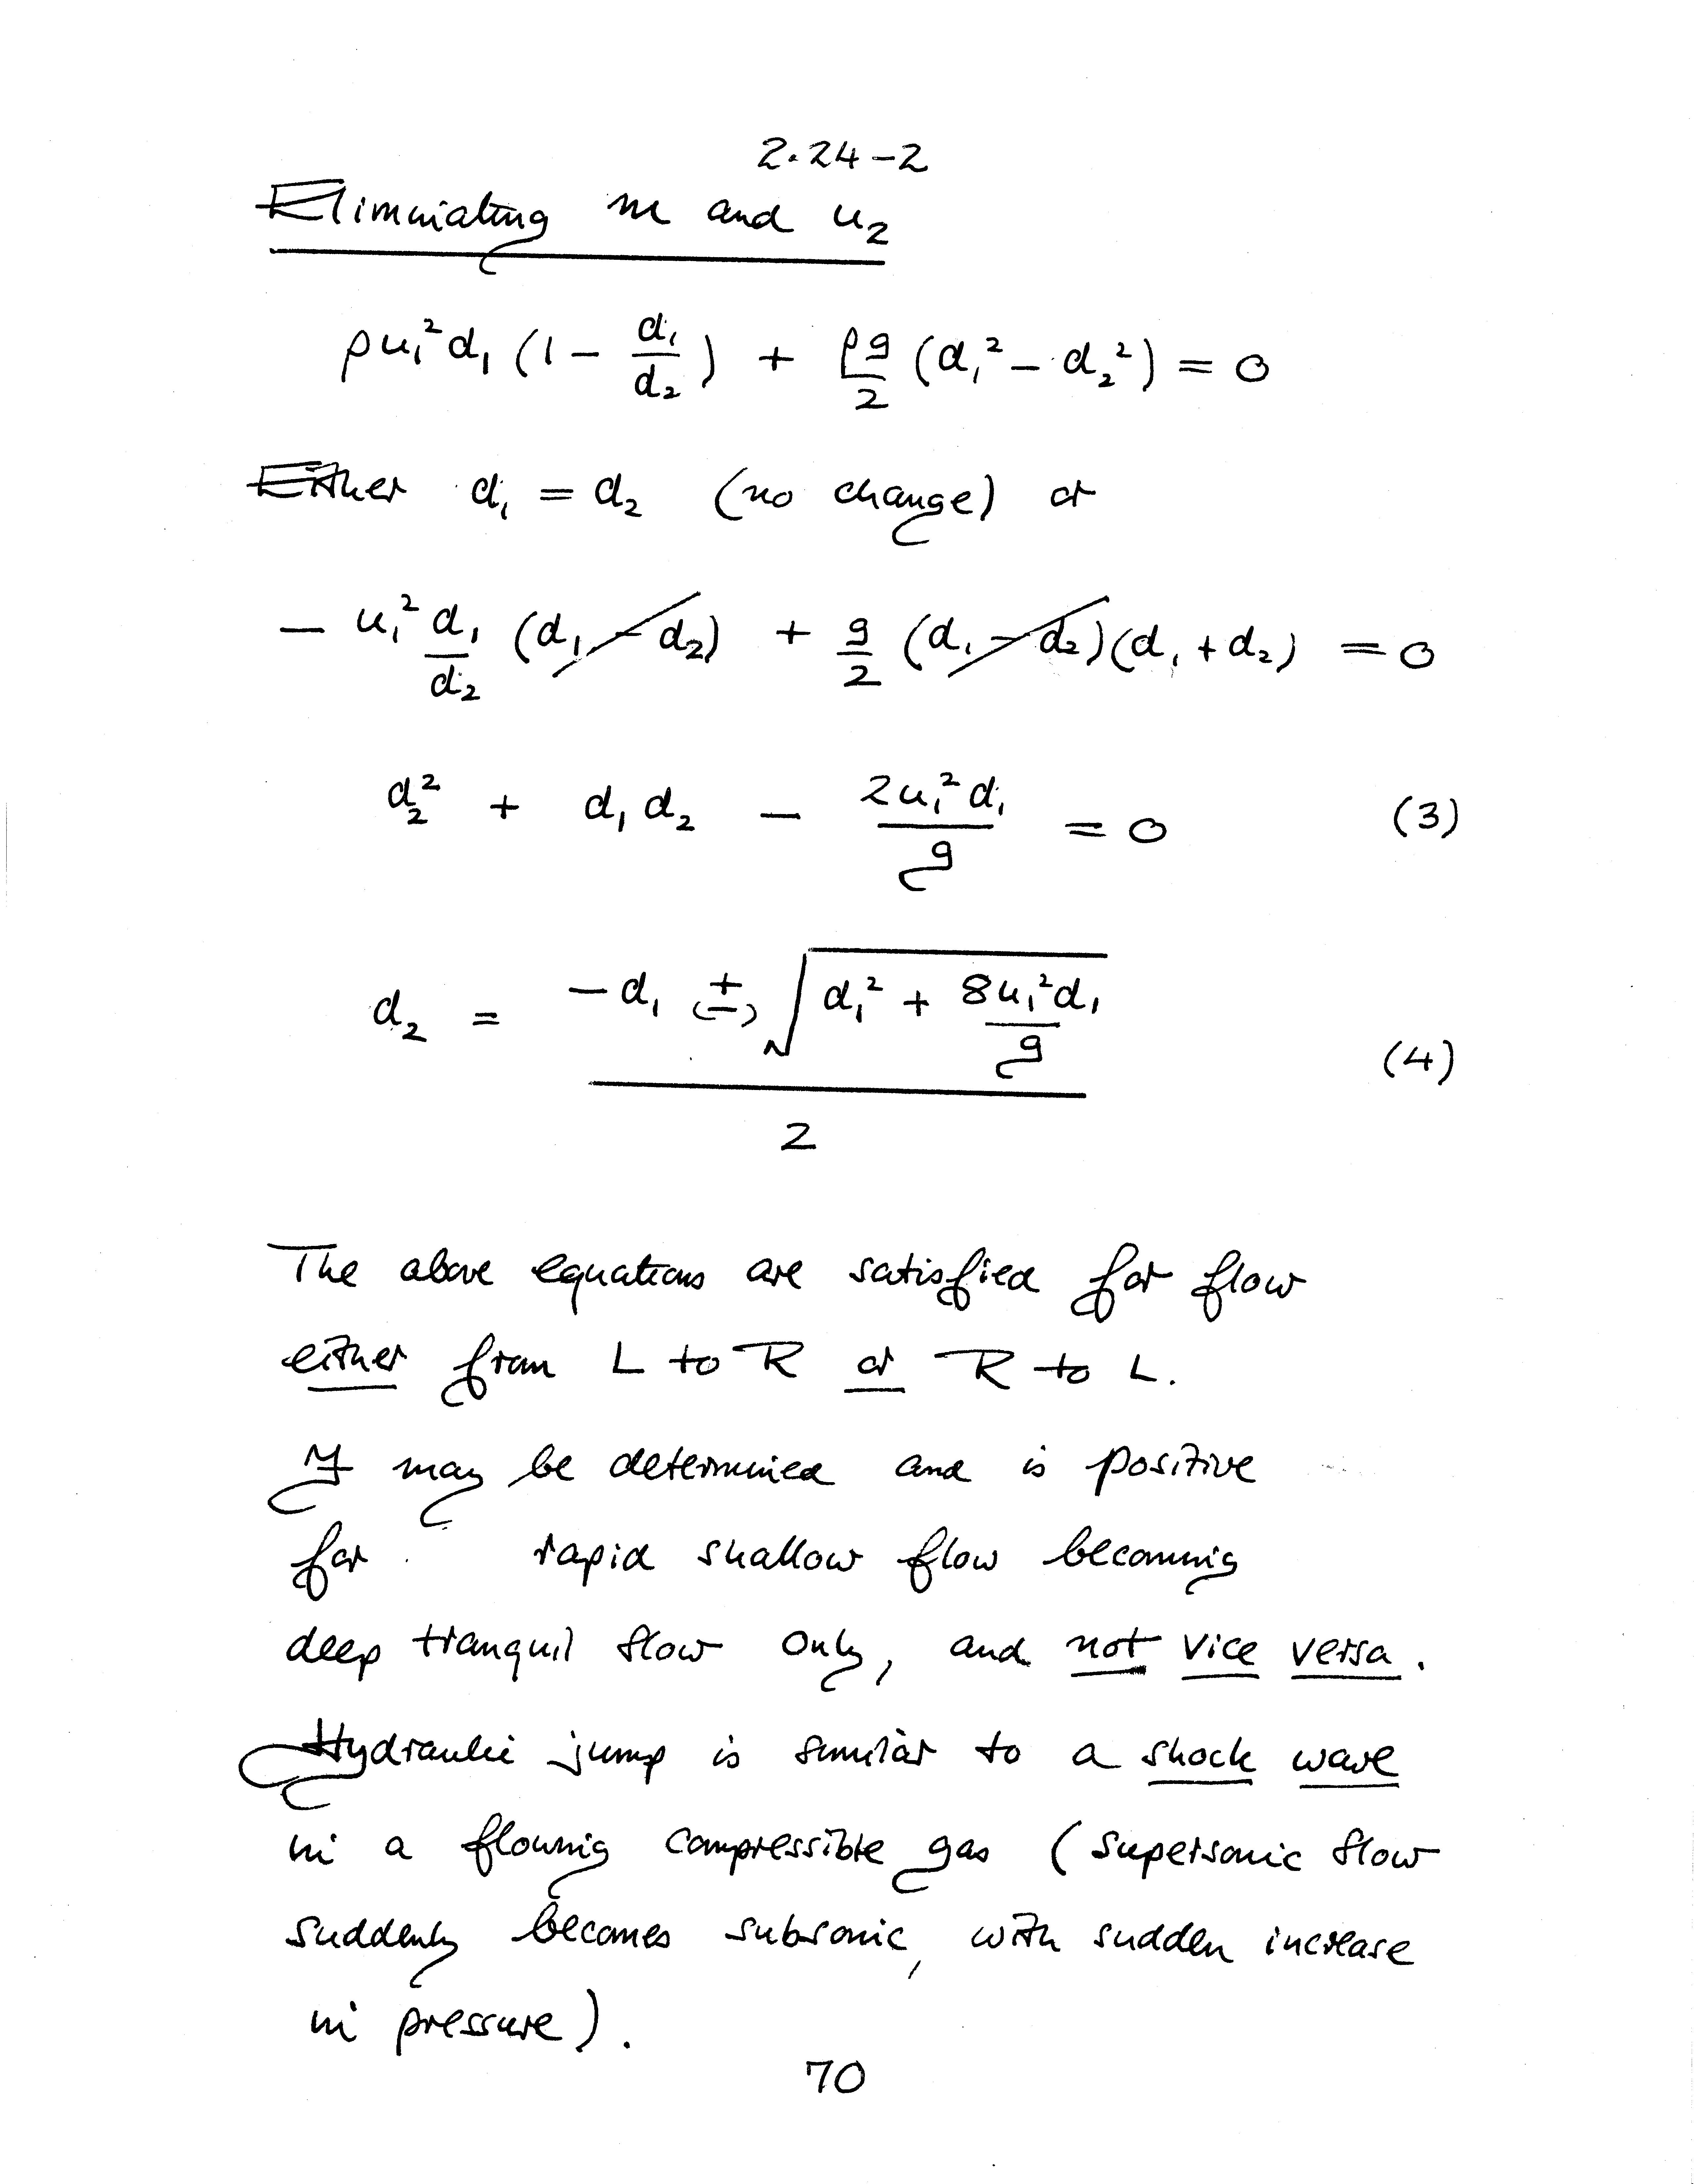 2.24-2
Eliminating m and u₂
ρu₁²d₁ (1 - d₁/d₂) + ρg/2 (d₁² - d₂²) = 0
Either d₁ = d₂ (no change) or
- u₁²d₁/d₂ (d₁ - d₂) + g/2 (d₁ - d₂)(d₁ + d₂) = 0
d₂² + d₁d₂ - 2u₁²d₁/g = 0 (3)
d₂ = (-d₁ +(-) √(d₁² + 8u₁²d₁/g))/2 (4)
The above equations are satisfied for flow
either from L to R or R to L.
may be determined and is positive
for rapid shallow flow becoming
deep tranquil flow only, and not vice versa.
Hydraulic jump is similar to a shock wave
in a flowing compressible gas (supersonic flow
suddenly becomes subsonic, with sudden increase
in pressure).
70